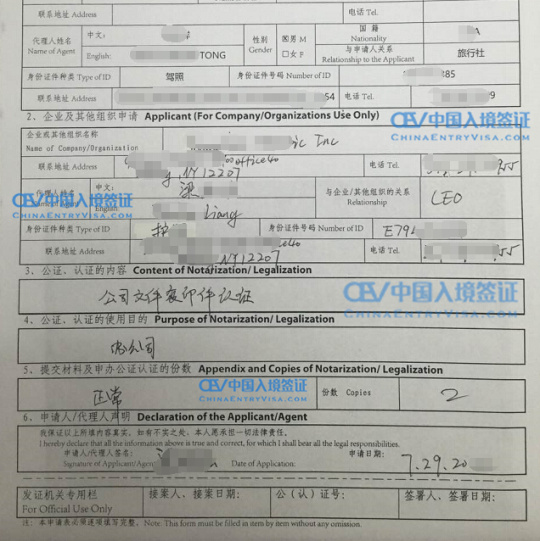 联系地址 Address 电话 Tel.
代理人姓名 Name of Agent 中文: 性别 Gender 男 M 女 F 国籍 Nationality A
English: TONG 与申请人关系 Relationship to the Applicant 旅行社
身份证件种类 Type of ID 驾照 身份证件号码 Number of ID 385
联系地址 Address 54 电话 Tel. 9
2、企业及其他组织申请 Applicant (For Company/Organizations Use Only)
CEV中国入境签证
CHINAENTRYVISA.COM
CEV中国入境签证
CHINAENTRYVISA.COM
企业或其他组织名称 Name of Company/Organization ic Inc
联系地址 Address office40 NY12207 电话 Tel. 55
代理人姓名 中文: 梁 与企业/其他组织的关系 Relationship CEO
English: Liang
身份证件种类 Type of ID 护 身份证件号码 Number of ID E791
联系地址 Address NY12207 电话 Tel. 55
3、公证、认证的内容 Content of Notarization/ Legalization
公司文件复印件认证
CEV中国入境签证
CHINAENTRYVISA.COM
4、公证、认证的使用目的 Purpose of Notarization/ Legalization
公司
5、提交材料及申办公证认证的份数 Appendix and Copies of Notarization/ Legalization
正常 份数 Copies 2
CEV中国入境签证
CHINAENTRYVISA.COM
6、申请人/代理人声明 Declaration of the Applicant/Agent
我保证以上所填内容真实，如有不实之处，本人愿承担一切法律责任。
I hereby declare that all the information above is true and correct, for which I shall bear all the legal responsibilities.
申请人/代理人签名: 申请日期:
Signature of Applicant/Agent Date of Application: 7.29.20
发证机关专用栏 接案人、接案日期: 公（认）证号: 签署人、签署日期:
For Official Use Only
注: 本申请表必须逐项填写完整。Note: This form must be filled in item by item without any omission.